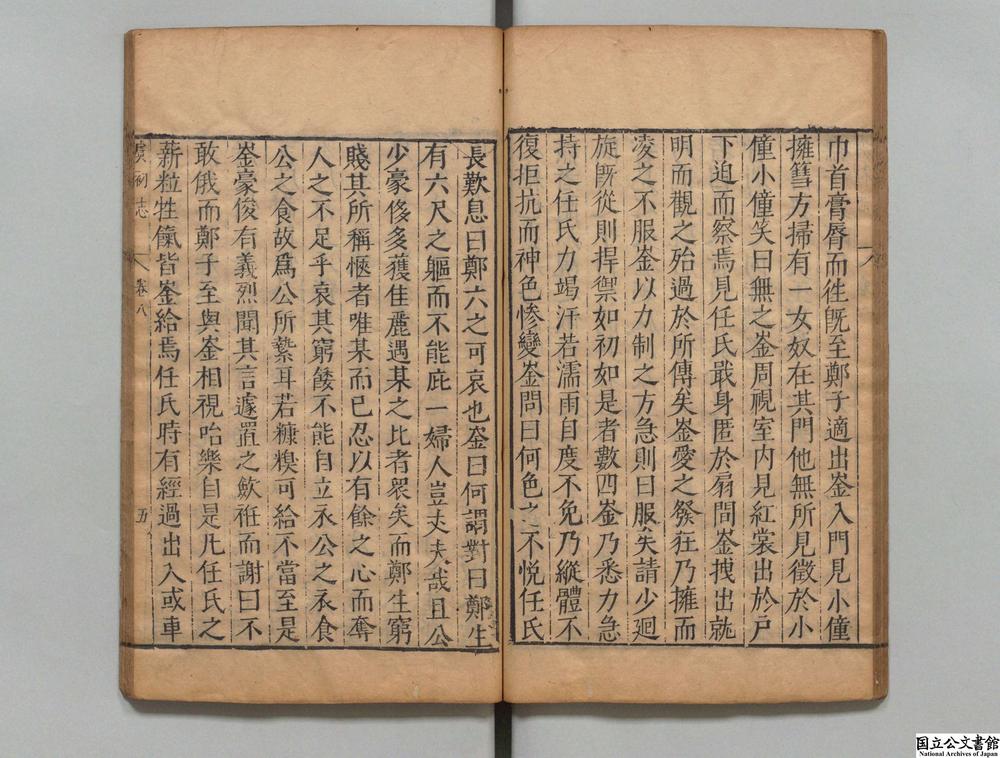 巾首膏脣而徃旣至鄭子適出崟入門見小僮
擁篲方掃有一女奴在其門他無所見徵於小
僮小僮笑曰無之崟周視室內見紅裳出於戶
下迫而察焉見任氏戢身匿於扇間崟拽出就
明而觀之殆過於所傳矣崟愛之發狂乃擁而
凌之不服崟以力制之方急則曰服矣請少廻
旋旣從則捍禦如初如是者數四崟乃悉力急
持之任氏力竭汗若濡雨自度不免乃縱體不
復拒抗而神色慘變崟問曰何色之不悅任氏
長歎息曰鄭六之可哀也崟曰何謂對曰鄭生
有六尺之軀而不能庇一婦人豈丈夫哉且公
少豪侈多獲佳麗遇某之比者衆矣而鄭生窮
賤其所稱愜者唯某而已忍以有餘之心而奪
人之不足乎哀其窮餒不能自立衣公之衣食
公之食故爲公所縶耳若糠糗可給不當至是
崟豪俊有義烈聞其言遽置之歛衽而謝曰不
敢俄而鄭子至與崟相視咍樂自是凡任氏之
薪粒牲餼皆崟給焉任氏時有經過出入或車
虞初志 卷八 五
国立公文書館
National Archives of Japan